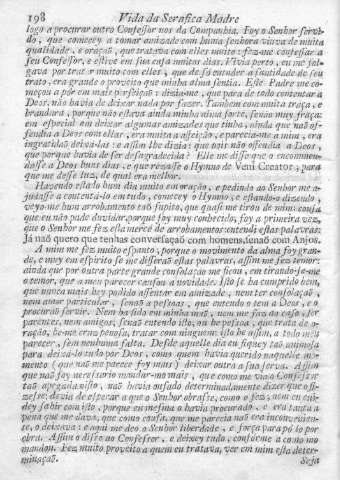 198 Vida da Serafica Madre
logo a procurar outro Confessor nos da Companhia. Foy o Senhor servi-
do, que comecey a tomar amizade com huma senhora viuva de muita
qualidade, e oraçaõ, que tratava com elles muito: fez-me confessar a
seu Confessor, e estive em sua casa muitos dias. Vivia perto, eu me fol-
gava por tratar muito com elles, que de só entender a santidade de seu
trato, era grande o proveito que minha alma sentia. Este Padre me co-
meçou a pôr em mais perfeiçaõ: dizia-me, que para de todo contentar a
Deos, naõ havia de deixar nada por fazer. Tambem com muita traça, e
brandura, porque naõ estava ainda minha alma forte, senaõ muy fraca:
em especial em deixar algumas amizades que tinha, ainda que naõ of-
fendia a Deos com ellas, era muita a affeiçaõ, e parecia-me a mim, era
ingratidaõ deixalas: e assim lhe dizia: que pois naõ offendia a Deos,
que porque havia de ser desagradecida? Elle me disse que o encommen-
dasse a Deos huns dias, e que rezasse o Hymno de Veni Creator, para
que me desse luz, de qual era melhor.
Havendo estado hum dia muito em oraçaõ, e pedindo ao Senhor me a-
judasse a contentá-lo em tudo, comecey o Hymno; e estando-o dizendo,
veyo-me hum arrobamento taõ subito, que quasi me tirou de mim: cousa
que eu naõ pude duvidar, porque foy muy conhecido, foy a primeira vez,
que o Senhor me fez esta mercê de arrobamentos: entendi estas palavras:
Já naõ quero que tenhas conversaçaõ com homens, senaõ com Anjos.
A mim me fez muito espanto, porque o movimento da alma foy gran-
de, e muy em espirito se me disseraõ estas palavras, assim me fez temor:
ainda que por outra parte grande consolaçaõ me ficou, em tirando-se-me
o temor, que a meu parecer causou a novidade. Isto se ha cumprido bem,
que nunca mais hey podido assentar em amizade, nem ter consolaçaõ,
nem amor particular, senaõ a pessoas, que entendo o tem a Deos, e o
procuraõ servir. Nem ha sido em minha maõ, nem me faz ao caso, ser
parentes, nem amigos, senaõ entendo isto, ou he pessoa, que trata de o-
raçaõ, he-me cruz penosa, tratar com ninguem: isto he assim, a todo meu
parecer, sem nenhuma falta. Desde aquelle dia eu fiquey taõ animosa
para deixá-lo tudo por Deos, como quem havia querido naquelle mo-
mento (que naõ me parece foy mais) deixar outra a sua serva. Assim
que naõ foy necessario mandar-mo mais, que como me via o Confessor
taõ apegada nisto, naõ havia ousado determinadamente dizer que o fi-
zesse: devia de esperar a que o Senhor obrasse, como o fez, nem eu cui-
dey sahir com isto, porque eu mesma o havia procurado, e era tanta a
pena que me dava, que como cousa que me parecia naõ era inconvenien-
te, o deixava: e aqui me deo o Senhor liberdade, e força para o pôr por
obra. Assim o disse ao Confessor, e deixey tudo, conforme a como mo
mandou. Fez muito proveito a quem eu tratava, ver em mim esta deter-
minaçaõ.
Seja